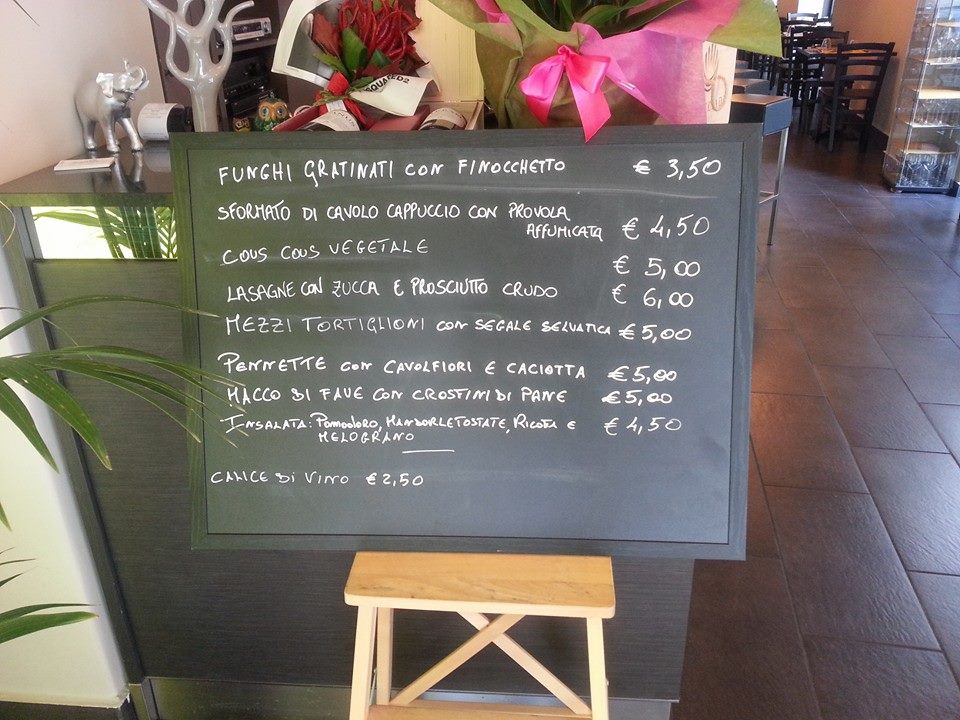 FUNGHI GRATINATI CON FINOCCHETTO € 3,50
SFORMATO DI CAVOLO CAPPUCCIO CON PROVOLA
AFFUMICATA € 4,50
COUS COUS VEGETALE € 5,00
LASAGNE CON ZUCCA E PROSCIUTTO CRUDO € 6,00
MEZZI TORTIGLIONI CON SEGALE SELVATICA € 5,00
PENNETTE CON CAVOLFIORI E CACIOTTA € 5,00
MACCO DI FAVE CON CROSTINI DI PANE € 5,00
INSALATA: POMODORO, MANDORLE TOSTATE, RICOTA E € 4,50
MELOGRANO
CALICE DI VINO € 2,50